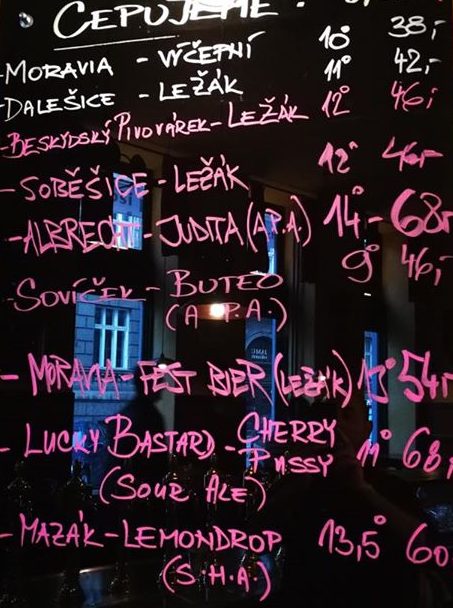 ČEPUJEME:
-MORAVIA - VÝČEPNÍ 10° 38,-
-DALEŠICE - LEŽÁK 11° 42,-
-BESKYDSKÝ PIVOVÁREK-LEŽÁK 12° 46,-
- SOBĚŠICE - LEŽÁK 12° 46,-
-ALBRECHT-JUDITA(A.P.A.) 14° - 68,-
-SOVÍČEK - BUTEO 9° 46,-
(A.P.A.)
- MORAVIA-FEST BIER(LEŽÁK) 13° 54,-
- LUCKY BASTARD - CHERRY PUSSY 11° 68,-
(SOUR ALE)
- MAZÁK-LEMONDROP 13,5° 60
(S.H.A.)